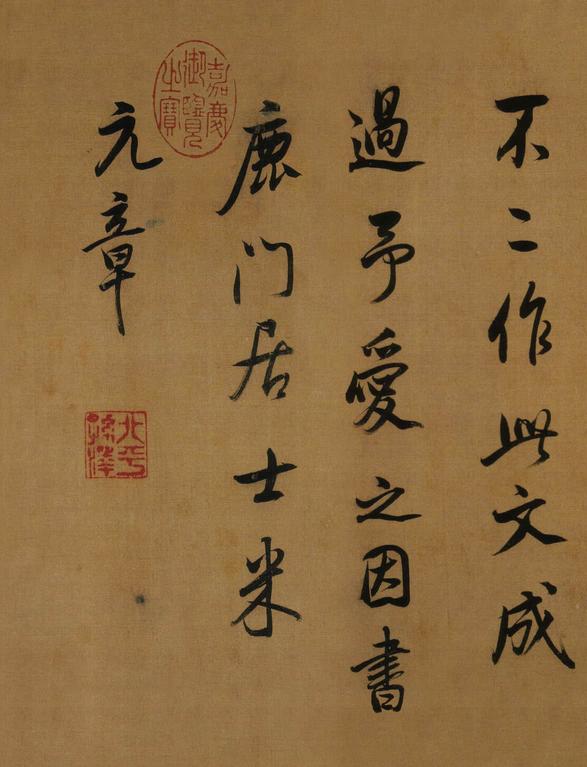 不二作此文成
過予愛之因書
鹿門居士米
元章
嘉慶
御覽
之寶
北平
孫澤